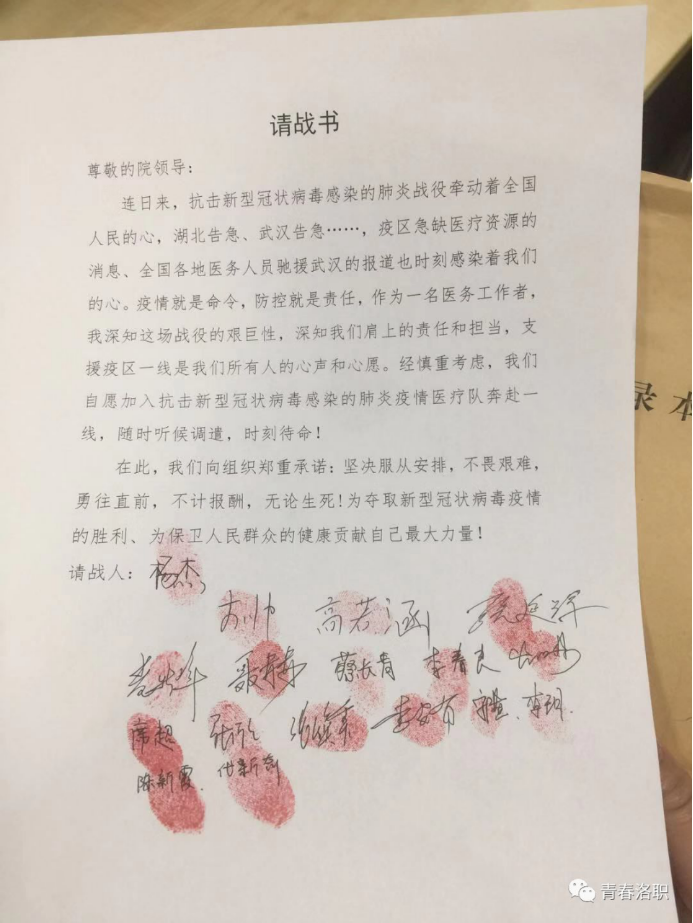 请战书
尊敬的院领导：
连日来，抗击新型冠状病毒感染的肺炎战役牵动着全国
人民的心，湖北告急、武汉告急……，疫区急缺医疗资源的
消息、全国各地医务人员驰援武汉的报道也时刻感染着我们
的心。疫情就是命令，防控就是责任，作为一名医务工作者，
我深知这场战役的艰巨性，深知我们肩上的责任和担当，支
援疫区一线是我们所有人的心声和心愿。经慎重考虑，我们
自愿加入抗击新型冠状病毒感染的肺炎疫情医疗队奔赴一
线，随时听候调遣，时刻待命！
在此，我们向组织郑重承诺：坚决服从安排，不畏艰难，
勇往直前，不计报酬，无论生死！为夺取新型冠状病毒疫情
的胜利、为保卫人民群众的健康贡献自己最大力量！
请战人：杨杰
高若涵
蔡长青 李春良
席超 李玥
陈新霞 代新奇
录本
青春洛职